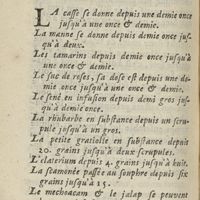 LA casse se donne depuis une demie once
jusqu'à une once & demie.
La manne se donne depuis demie once jus-
qu'à deux.
Les tamarins depuis demie once jusqu'à
une once & demie.
Le suc de roses, sa dose est depuis une de-
mie once jusqu'à une once & demie.
Le sené en infusion depuis demi gros jus-
qu'à demie once.
La rhubarbe en substance depuis un scru-
pule jusqu'à un gros.
La petite gratiolle en substance depuis
20. grains jusqu'à deux scrupules.
L'elaterium depuis 4. grains jusqu'à huit.
La scamonée passée au souphre depuis six
grains jusqu'à 15.
Le mechoacam & le jalap se peuvent